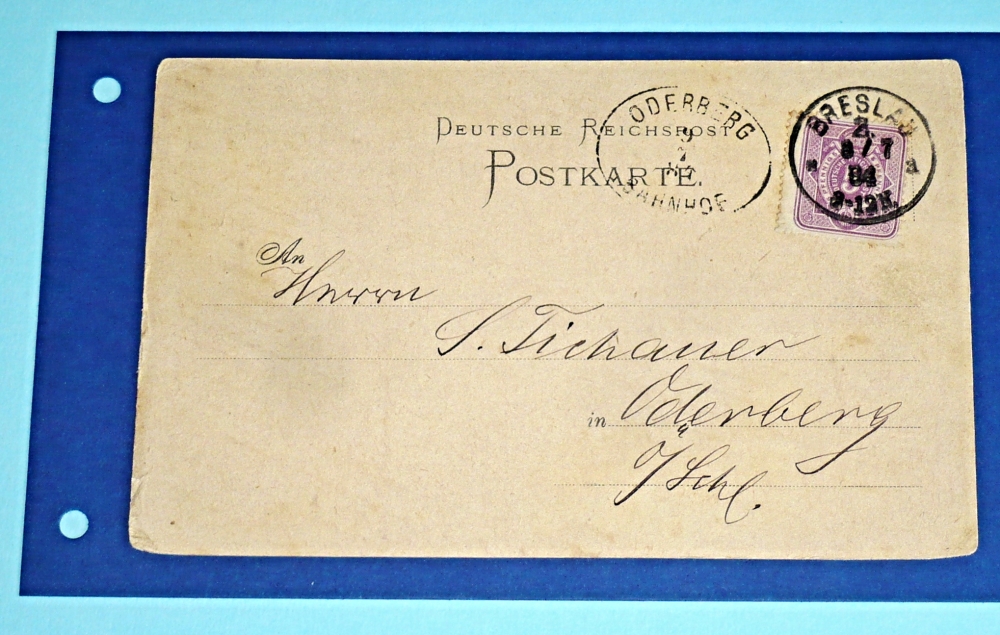 DEUTSCHE REICHSPOST
POSTKARTE.
ODERBERG
9
7
BAHNHOF
BRESLAU
2.
8 / 7
84
9-12N.
* a
An
Herrn
S. Tichauer
in Oderberg
O/Schl.